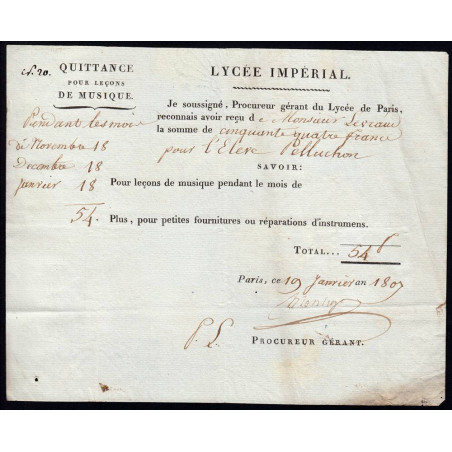 N. 20.
QUITTANCE
POUR LEÇONS
DE MUSIQUE.
Pendant les mois
de Novembre 18
Decembre 18
Janvier 18
54.
LYCÉE IMPÉRIAL.
Je soussigné, Procureur gérant du Lycée de Paris,
reconnais avoir reçu de Monsieur
la somme de cinquante quatre francs
pour l'Eleve Pelluchon
SAVOIR:
Pour leçons de musique pendant le mois de
Plus, pour petites fournitures ou réparations d'instrumens.
TOTAL... 54 f
Paris, ce 19 Janvier an 1807
P. L.
PROCUREUR GÉRANT.